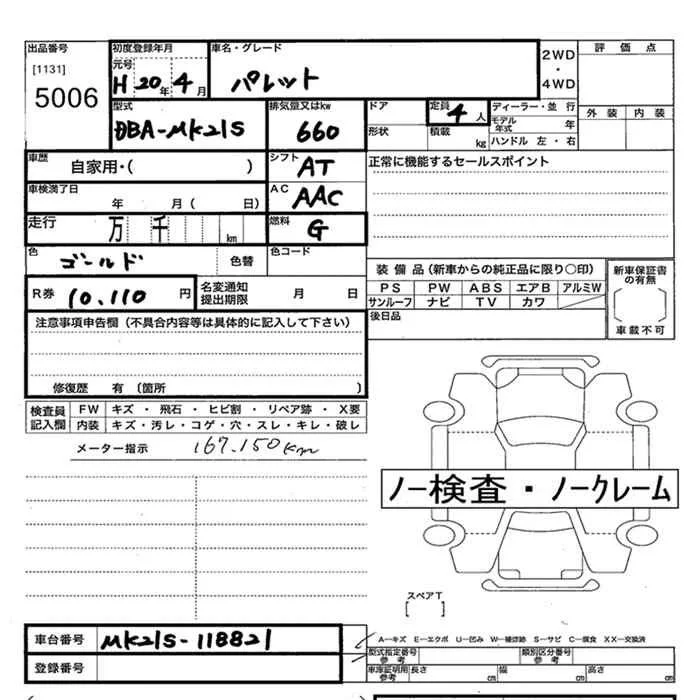 出品番号 初度登録年月 車名・グレード 2WD・4WD 評価点
[1131] 元号
5006 H 20年 4月 パレット
型式 排気量又はkw ドア 定員 4人 ディーラー・並行 外装 内装
DBA-MK21S 660 形状 積載 kg モデル年式 年
ハンドル 左・右
車歴 自家用・( ) シフト AT 正常に機能するセールスポイント
車検満了日 年 月( 日) AC AAC
走行 万 千 km 燃料 G
色 ゴールド 色替 色コード
装備品(新車からの純正品に限り○印) 新車保証書の有無
R券 10,110円 名変通知提出期限 月 日 PS PW ABS エアB アルミW
サンルーフ ナビ TV カワ
注意事項申告欄(不具合内容等は具体的に記入して下さい) 後日品 車載不可
修復歴 有(箇所 )
検査員記入欄 FW キズ・飛石・ヒビ割・リペア跡・X要
内装 キズ・汚レ・コゲ・穴・スレ・キレ・破レ
メーター指示 167.150km
ノー検査・ノークレーム
スペアT
[ ]
車台番号 MK21S-118821 A―キズ E―エクボ U―凹み W―補修跡 S―サビ C―腐食 XX―交換済
型式指定番号 参考 類別区分番号 参考
登録番号 車庫証明用 参考 長さ cm 幅 cm 高さ cm